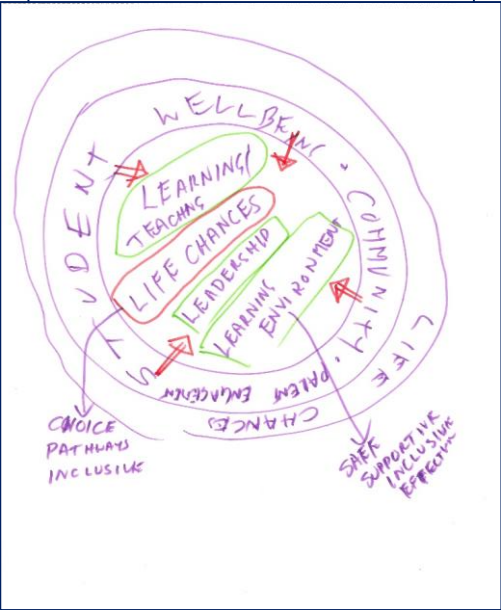 STUDENT WELLBEING • COMMUNITY • PARENT ENGAGEMENT
LIFE CHANCES
LEARNING/
TEACHNG
LIFE CHANCES
LEADERSHIP
LEARNING
ENVIRONMENT
CHOICE
PATHWAYS
INCLUSIVE
SAFE
SUPPORTIVE
INCLUSIVE
EFFECTIVE